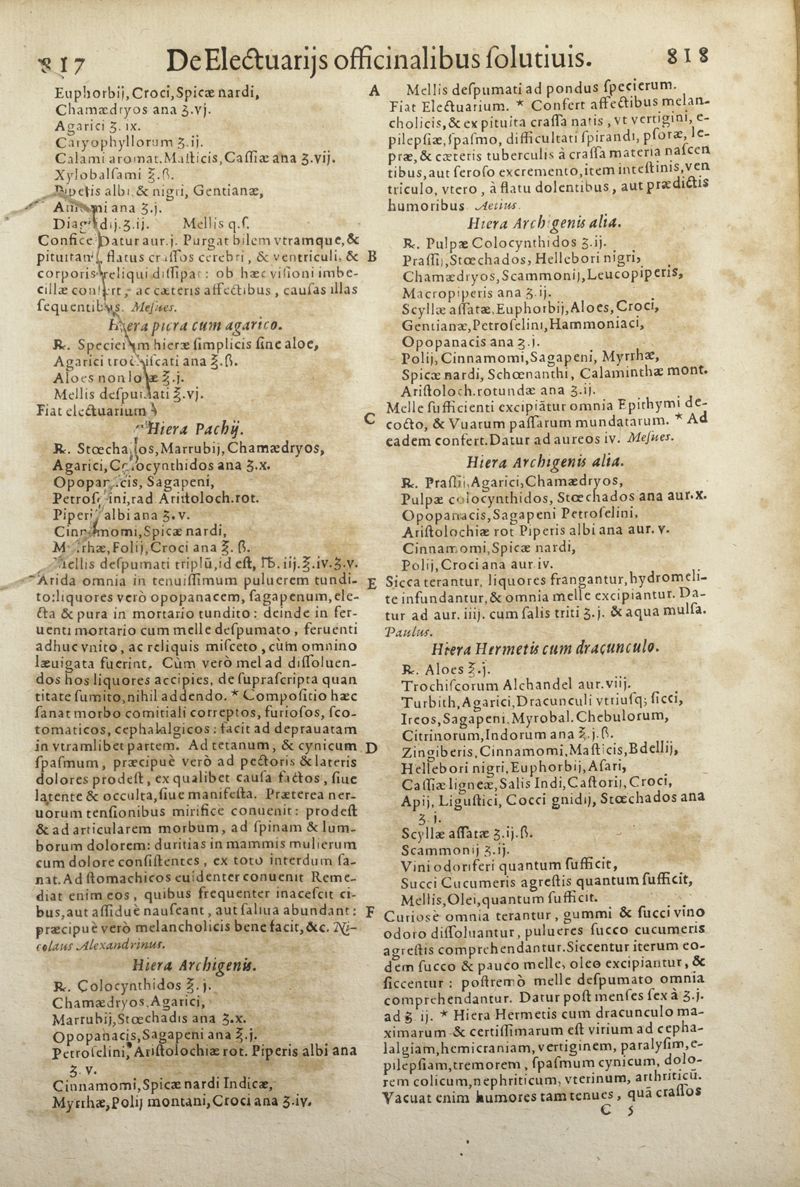 817 De Electuarijs officinalibus solutiuis. 818
Euphorbij, Croci, Spicæ nardi,
Chamædryos ana ʒ.vj.
Agarici ʒ. ix.
Caryophyllorum ʒ.ij.
Calami aromat. Masticis, Cassiæ ana ʒ.vij.
Xylobalsami ℥.ß.
albi & nigri, Gentianæ,
ana ʒ.j.
Diagridij. ʒ.ij. Mellis q.s.
Confice. Datur aur. j. Purgat bilem vtramque, &
pituitam, flatus crassos cerebri, & ventriculi, &
corporis reliqui dissipat: ob hæc visioni imbe-
cillæ confert, ac cæteris affectibus, causas illas
sequentibus. Mesues.
Hiera picra cum agarico.
℞. Specierum hieræ simplicis sine aloe,
Agarici trochiscati ana ℥.ß.
Aloes non lotæ ℥.j.
Mellis despumati ℥.vj.
Fiat electuarium
Hiera Pachij.
℞. Stœchados, Marrubij, Chamædryos,
Agarici, Colocynthidos ana ʒ.x.
Opopanacis, Sagapeni,
Petroselini, rad. Aristoloch. rot.
Piperis albi ana ʒ. v.
Cinnamomi, Spicæ nardi,
Myrrhæ, Folij, Croci ana ℥. ß.
Mellis despumati triplũ, id est, ℔. iij. ℥. iv. ʒ.v.
Arida omnia in tenuissimum puluerem tundi-
to: liquores verò opopanacem, sagapenum, ele-
cta & pura in mortario tundito: deinde in fer-
uenti mortario cum melle despumato, feruenti
adhuc vnito, ac reliquis misceto, cùm omnino
læuigata fuerint. Cùm verò mel ad dissoluen-
dos hos liquores accipies, de suprascripta quan
titate sumito, nihil addendo. * Compositio hæc
sanat morbo comitiali correptos, furiosos, sco-
tomaticos, cephalalgicos: facit ad deprauatam
in vtramlibet partem. Ad tetanum, & cynicum
spasmum, præcipuè verò ad pectoris & lateris
dolores prodest, ex qualibet causa factos, siue
latente & occulta, siue manifesta. Præterea ner-
uorum tensionibus mirifice conuenit: prodest
& ad articularem morbum, ad spinam & lum-
borum dolorem: duritias in mammis mulierum
cum dolore consistentes, ex toto interdum sa-
nat. Ad stomachicos euidenter conuenit Reme-
diat enim eos, quibus frequenter inacescit ci-
bus, aut assiduè nauseant, aut saliua abundant:
præcipuè verò melancholicis bene facit, &c. Ni-
colaus Alexandrinus.
Hiera Archigenis.
℞. Colocynthidos ℥. j.
Chamædryos, Agarici,
Marrubij, Stœchadis ana ʒ.x.
Opopanacis, Sagapeni ana ℥.j.
Petroselini, Aristolochiæ rot. Piperis albi ana
ʒ. v.
Cinnamomi, Spicæ nardi Indicæ,
Myrrhæ, Polij montani, Croci ana ʒ.iv.
A Mellis despumati ad pondus specierum.
Fiat Electuarium. * Confert affectibus melan-
cholicis, & ex pituita crassa natis, vt vertigini, e-
pilepsiæ, spasmo, difficultati spirandi, psoræ, le-
præ, & cæteris tuberculis à crassa materia nascen
tibus, aut seroso excremento, item intestinis, ven
triculo, vtero, à flatu dolentibus, aut prædictis
humoribus. Aetius.
Hiera Archigenis alia.
℞. Pulpæ Colocynthidos ʒ.ij.
B Prassij, Stœchados, Hellebori nigri,
Chamædryos, Scammonij, Leucopiperis,
Macropiperis ana ʒ ij.
Scyllæ assatæ, Euphorbij, Aloes, Croci,
Gentianæ, Petroselini, Hammoniaci,
Opopanacis ana ʒ.j.
Polij, Cinnamomi, Sagapeni, Myrrhæ,
Spicæ nardi, Schœnanthi, Calaminthæ mont.
Aristoloch. rotundæ ana ʒ.ij.
Melle sufficienti excipiãtur omnia Epithymi de-
C cocto, & Vuarum passarum mundatarum. * Ad
eadem confert. Datur ad aureos iv. Mesues.
Hiera Archigenis alia.
℞. Prassij, Agarici, Chamædryos,
Pulpæ colocynthidos, Stœchados ana aur.x.
Opopanacis, Sagapeni Petroselini,
Aristolochiæ rot Piperis albi ana aur. v.
Cinnamomi, Spicæ nardi,
Polij, Croci ana aur iv.
E Sicca terantur, liquores frangantur, hydromeli-
te infundantur, & omnia melle excipiantur. Da-
tur ad aur. iiij. cum salis triti ʒ.j. & aqua mulsa.
Paulus.
Hiera Hermetis cum dracunculo.
℞. Aloes ℥.j.
Trochiscorum Alchandel aur. viij.
Turbith, Agarici, Dracunculi vtriusq; sicci,
Ireos, Sagapeni, Myrobal. Chebulorum,
Citrinorum, Indorum ana ℥.j.ß.
D Zingiberis, Cinnamomi, Mastıcis, Bdellij,
Hellebori nigri, Euphorbij, Asari,
Cassiæ ligneæ, Salis Indi, Castorij, Croci,
Apij, Ligustici, Cocci gnidij, Stœchados ana
ʒ. j.
Scyllæ assatæ ʒ.ij.ß.
Scammonij ʒ.ij.
Vini odoriferi quantum sufficit,
Succi Cucumeris agrestis quantum sufficit,
Mellis, Olei, quantum sufficit.
F Curiosè omnia terantur, gummi & succi vino
odoro dissoluantur, pulueres succo cucumeris
agrestis comprehendantur. Siccentur iterum eo-
dem succo & pauco melle, oleo excipiantur, &
siccentur: postremò melle despumato omnia
comprehendantur. Datur post menses sex à ʒ.j.
ad ʒ ij. * Hiera Hermetis cum dracunculo ma-
ximarum & certissimarum est virium ad cepha-
lalgiam, hemicraniam, vertiginem, paralysim, e-
pilepsiam, tremorem, spasmum cynicum, dolo-
rem colicum, nephriticum, vterinum, arthriticũ.
Vacuat enim humores tam tenues, quã crassos
C 5